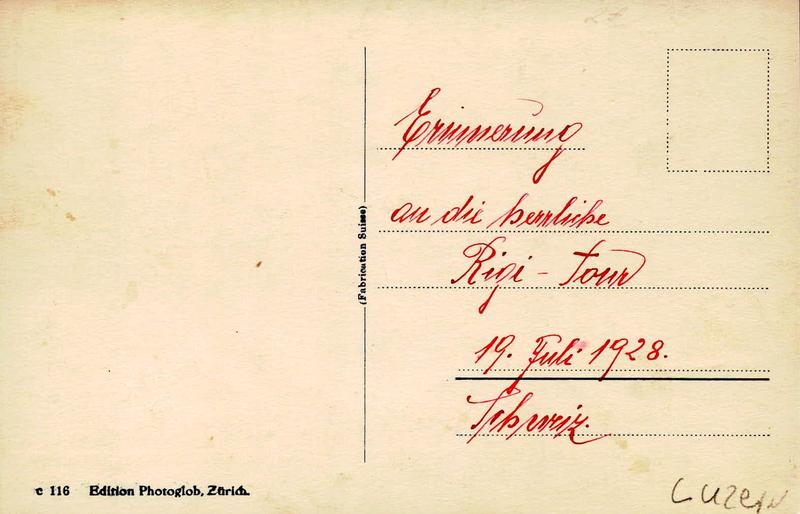 Erinnerung
an die herrliche
Rigi - Tour
19. Juli 1928.
Schweiz.
(Fabrication Suisse)
c 116 Edition Photoglob, Zürich.
Luzern